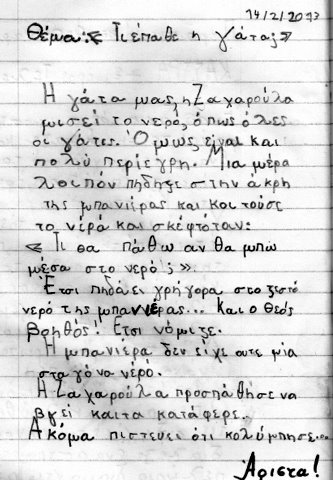 14/2/2013
Θέμα: «Τι έπαθε η γάτα;»
Η γάτα μας, η Ζαχαρούλα
μισεί το νερό, όπως όλες
οι γάτες. Όμως είναι και
πολύ περίεγρη. Μια μέρα
λοιπόν πήδηξε στην άκρη
της μπανιέρας και κοιτούσε
το νερό και σκέφτόταν:
«Τι θα πάθω αν θα μπω
μέσα στο νερό;».
Έτσι πηδάει γρήγορα στο ζεστό
νερό της μπαννέρας... Και ο Θεός
βοηθός! Έτσι νόμιζε.
Η μπανιέρα δεν είχε ουτε μία
σταγόνα νερό.
Η Ζαχαρούλα προσπάθησε να
βγεί και τα κατάφερε.
Ακόμα πιστεύει ότι κολύμπησε...
Άριστα!